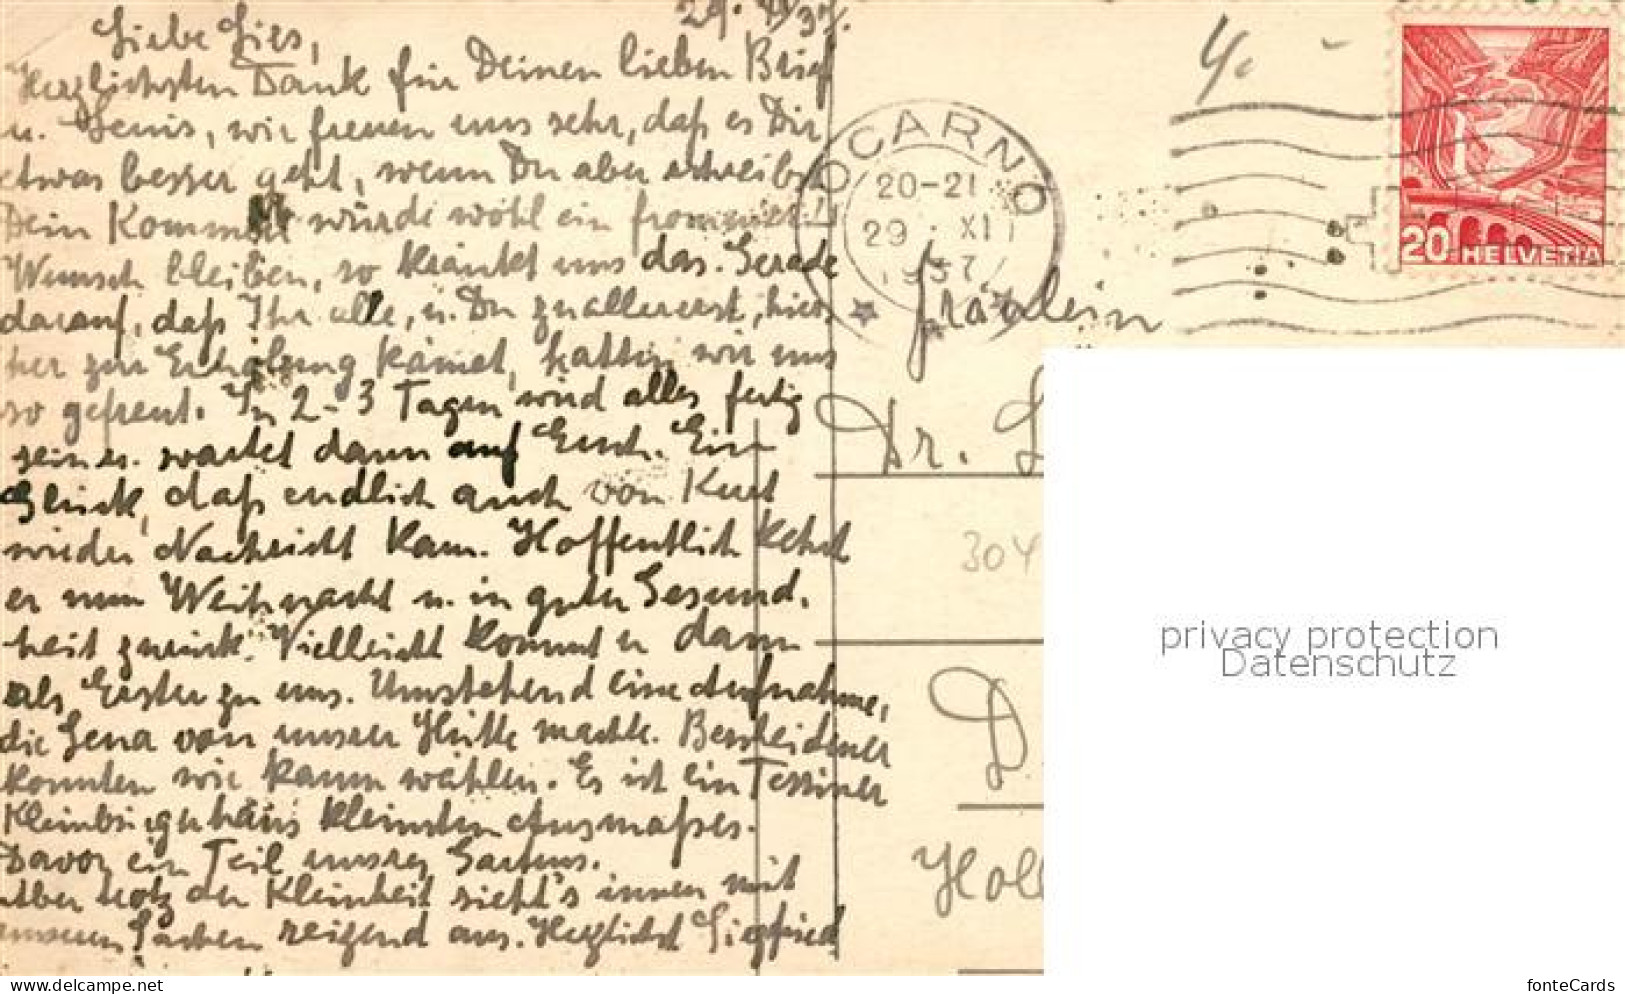 29. XI 37.
Liebe Lies,
Herzlichsten Dank für Deinen lieben Brief
u. , wir freuen uns sehr, daß es Dir
etwas besser geht, wenn Du aber schreibst
Dein Kommen würde wohl ein frommer
Wunsch bleiben, so kränkt uns das. Gerade
darauf, daß Ihr alle, u. Du zuallererst, hier-
her zur Erholung kämet, hatten wir uns
so gefreut. In 2-3 Tagen wird alles fertig
sein u. wartet dann auf Euch. Ein
Glück, daß endlich auch von Kurt
wieder Nachricht kam. Hoffentlich kehrt
er nun Weihnacht u. in guter Gesund-
heit zurück. Vielleicht kommt er dann
als Erster zu uns. Umstehend eine Aufnahme,
die Lena von unsrer Hütte machte. Bescheidener
konnten wir kaum wählen. Es ist ein Tessiner
Kleinbürgerhaus kleinsten Ausmaßes.
Davor ein Teil unsres Gartens.
Aber trotz der Kleinheit sieht's innen mit
unseren Sachen reizend aus. Herzlichst Siegfried
LOCARNO
20-21
29. XI
1937
20 HELVETIA
Fräulein
Dr. L
304
D.
Holl
privacy protection
Datenschutz
www.delcampe.net
fonteCards